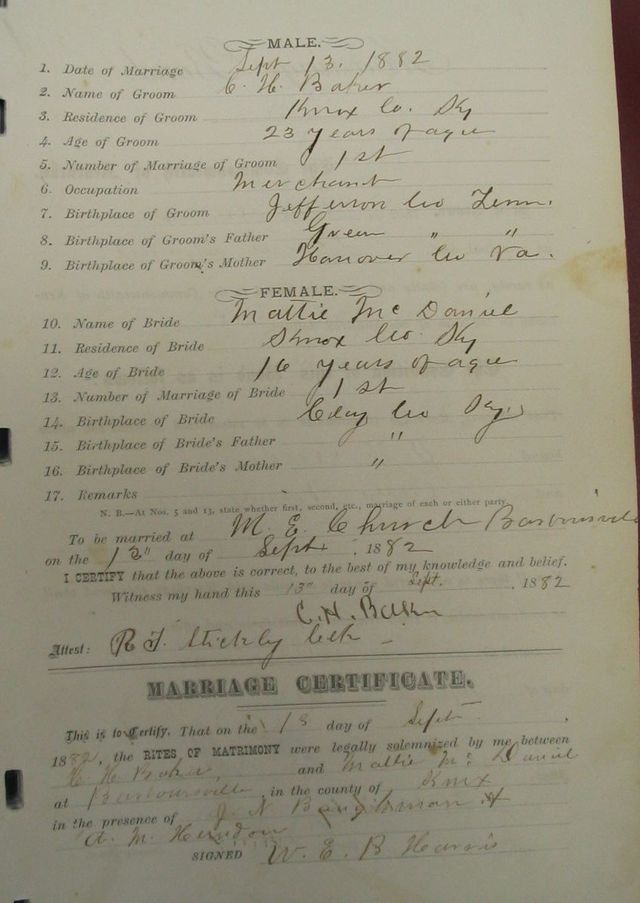 MALE.
1. Date of Marriage Sept 13, 1882
2. Name of Groom C. H. Baker
3. Residence of Groom Knox Co. Ky
4. Age of Groom 23 years of age
5. Number of Marriage of Groom 1st
6. Occupation Merchant
7. Birthplace of Groom Jefferson Co Tenn.
8. Birthplace of Groom's Father Green " "
9. Birthplace of Groom's Mother Hanover Co Va.
FEMALE.
10. Name of Bride Mattie Mc Daniel
11. Residence of Bride Knox Co. Ky
12. Age of Bride 16 years of age
13. Number of Marriage of Bride 1st
14. Birthplace of Bride Clay Co Ky.
15. Birthplace of Bride's Father "
16. Birthplace of Bride's Mother "
17. Remarks
N. B.—At Nos. 5 and 13, state whether first, second, etc., marriage of each or either party.
To be married at M. E. Church Barbourville
on the 13" day of Sept , 1882
I CERTIFY that the above is correct, to the best of my knowledge and belief.
Witness my hand this 13" day of Sept. , 1882
C. H. Baker
Attest: R. F. Stickly Clk
MARRIAGE CERTIFICATE.
This is to Certify, That on the 13 day of Sept
1882, the RITES OF MATRIMONY were legally solemnized by me between
C H Baker, and Mattie Mc Daniel
at Barboursville, in the county of Knox
in the presence of J. N. &
A. M. Herndon
SIGNED W. E. B Harris